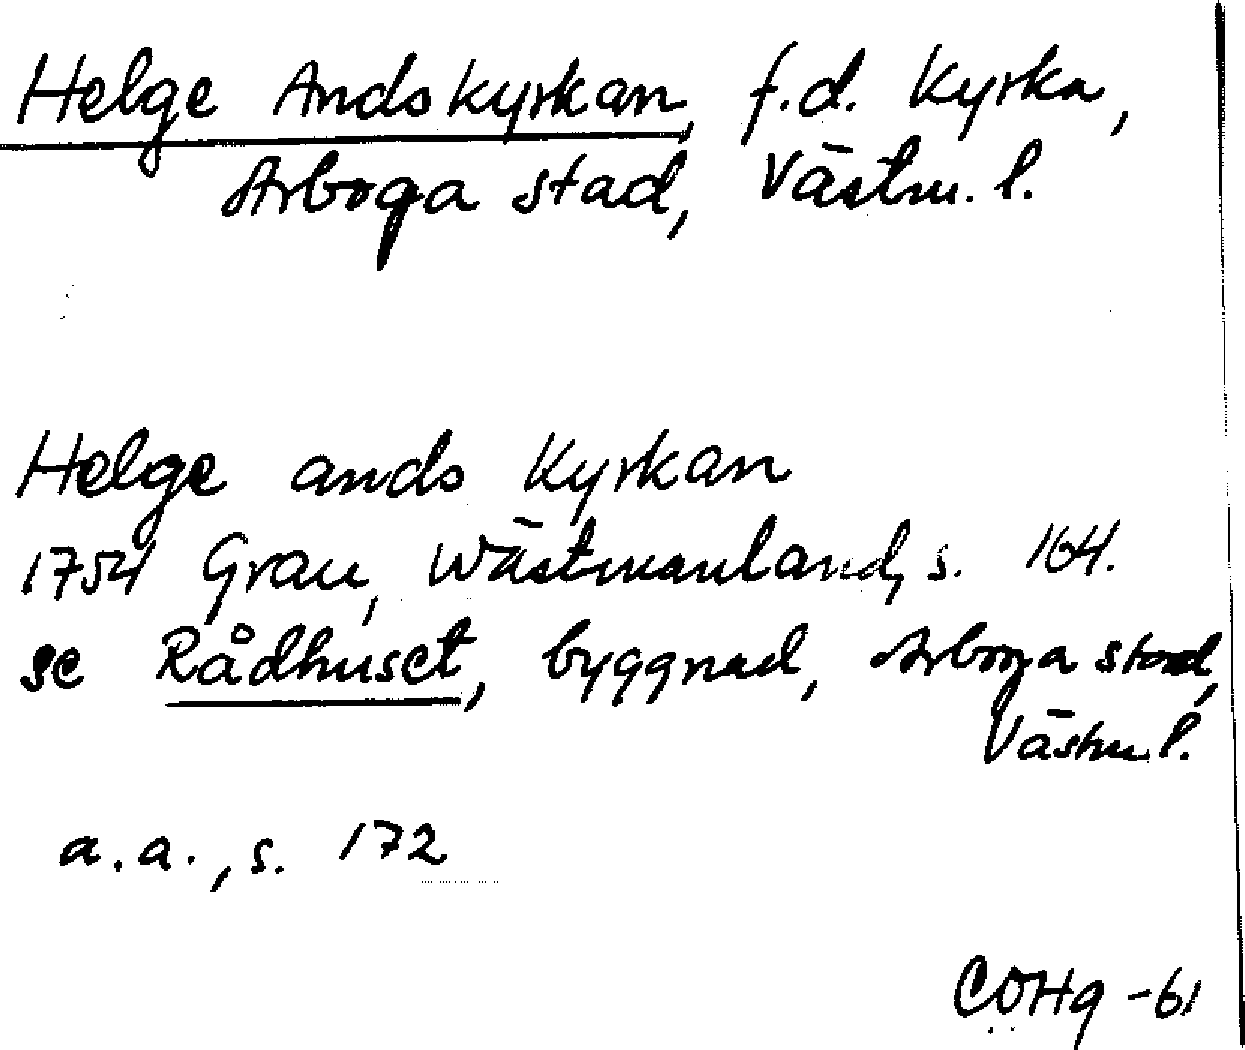 Helge Andskyrkan, f.d. Kyrka,
Arboga stad, Västm. l.
Helge ands Kyrkan
1754 Grau, Wästmanland, s. 164.
se Rådhuset, byggnad, Arboga stad,
Västm l.
a.a., s. 172
CÖHg -61